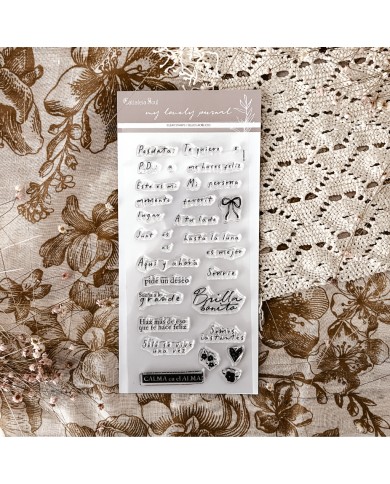 my lovely journal
Posdata: Te quiero
P.D. a me haces feliz
Este es mi Mi persona
momento favorit
lugar A tu lado
Junt s
hasta la luna
es mejor
Aquí y ahora Sonríe
pide un deseo
Sueña a lo
grande
Brilla
bonito
Haz más de eso
que te hace feliz
Somos
instantes
Sólo se vive
una vez
CALMA en el ALMA